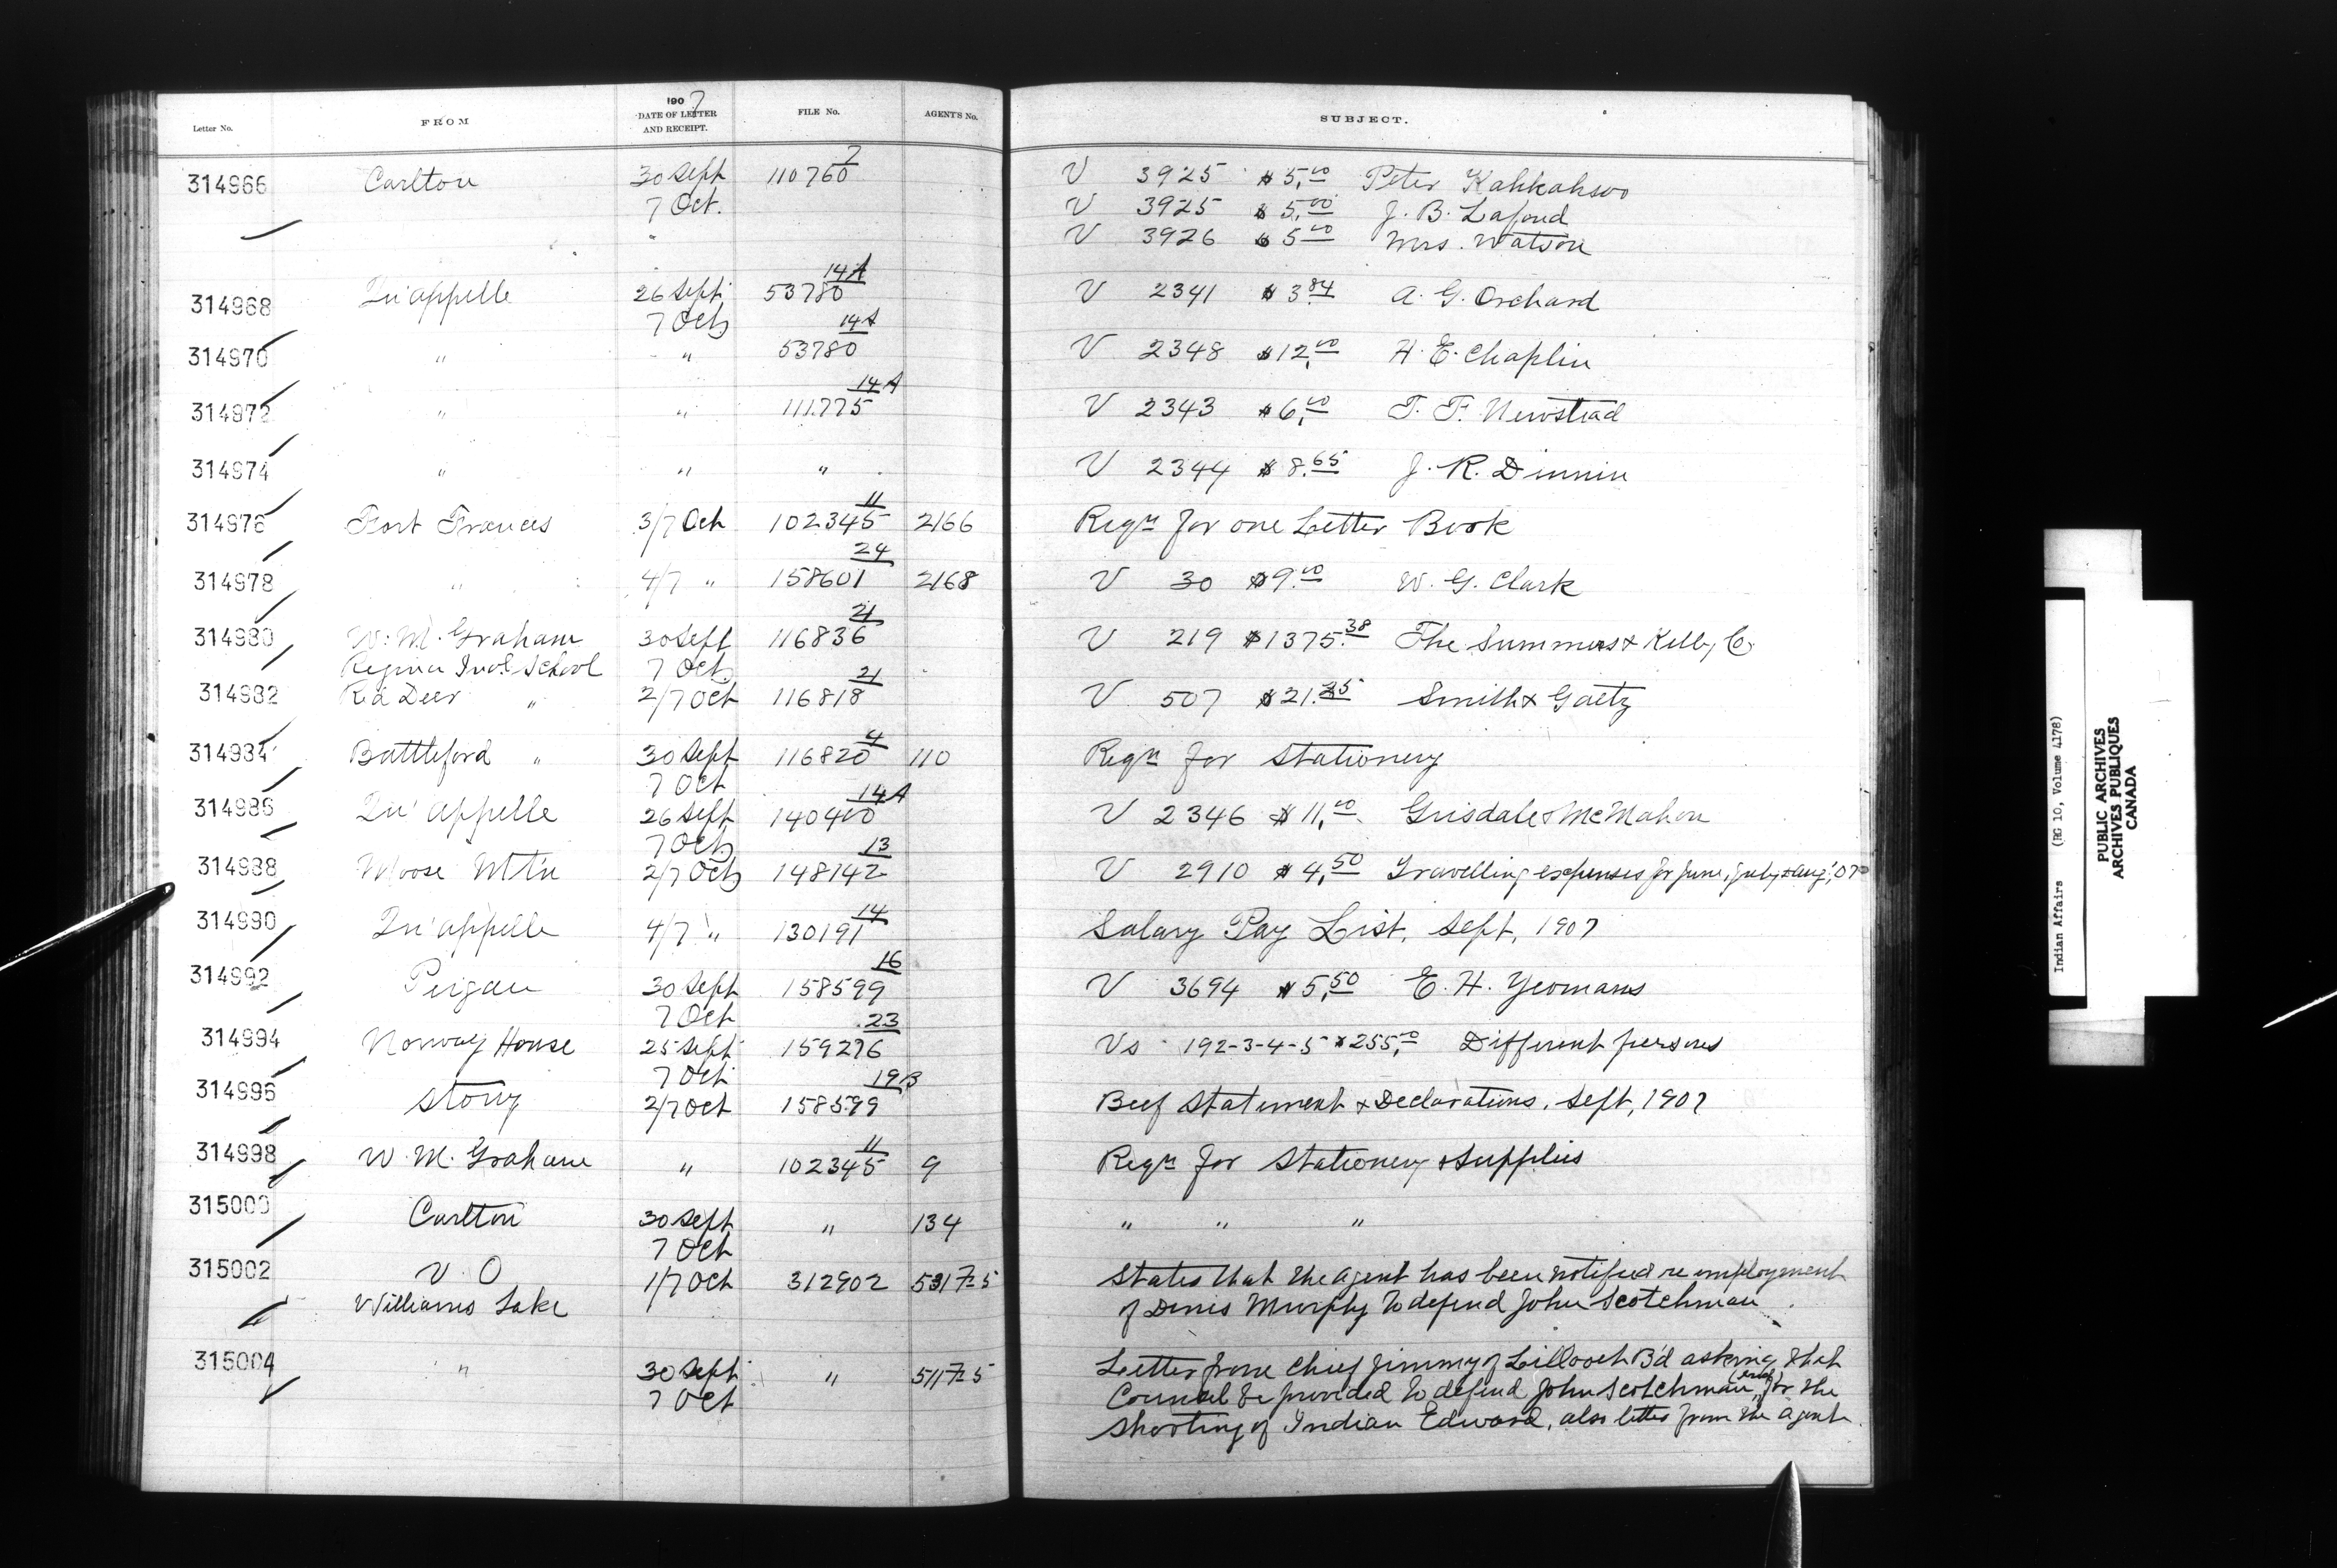 Letter No. FROM 1907 DATE OF LETTER AND RECEIPT. FILE No. AGENTS No. SUBJECT.
314966 Carlton 30 Sept 110760 7 V 3925 $5.00 Peter Kahkahsoo
7 Oct. V 3925 $5.00 J. B. Lafond
" V 3926 $5.00 Mrs. Watson
314968 Qu'appelle 26 Sept 53780 14A V 2341 $3.84 A. G. Orchard
7 Oct
314970 " " 53780 14A V 2348 $12.00 H. E. Chaplin
314972 " " 111775 14A V 2343 $6.00 T. F. Newstead
314974 " " " V 2344 $8.65 J. R. Dinnin
314976 Fort Frances 3/7 Oct 102345 11 2166 Reqn for one Letter Book
314978 " 4/7 " 158601 24 2168 V 30 $9.00 W. G. Clark
314980 W. M. Graham 30 Sept 116836 21 V 219 $1375.38 The Summers & Kelly Co
Regina Indl School 7 Oct.
314982 Red Deer " 2/7 Oct 116818 21 V 507 $21.25 Smith & Gaetz
314984 Battleford " 30 Sept 116820 4 110 Reqn for Stationery
7 Oct
314986 Qu'appelle 26 Sept 140400 14A V 2346 $11.00 Grisdale & McMahon
7 Oct
314988 Moose Mtn 2/7 Oct 148142 13 V 2910 $4.50 Travelling expenses for June, July & Aug, '07
314990 Qu'appelle 4/7 " 130191 14 Salary Pay List, Sept, 1907
314992 Peigan 30 Sept 158599 16 V 3694 $5.50 E. H. Yeomans
7 Oct
314994 Norway House 25 Sept 159276 23 Vs 192-3-4-5 $255.00 Different persons
7 Oct
314996 Stony 2/7 Oct 158599 19B Beef Statement & Declarations, Sept, 1907
314998 W. M. Graham " 102345 11 9 Reqn for Stationery & Supplies
315000 Carlton 30 Sept " 134 " " "
7 Oct
315002 V. O 1/7 Oct 312902 531725 States that the agent has been notified re employment
Williams Lake of Denis Murphy to defend John Scotchman.
315004 " 30 Sept " 511725 Letter from Chief Jimmy of Lillooet B'd asking that
7 Oct Counsel be provided to defend John Scotchman, for the
shooting of Indian Edward, also letter from the agent.
Indian Affairs (RG 10, Volume 4178)
PUBLIC ARCHIVES
ARCHIVES PUBLIQUES
CANADA